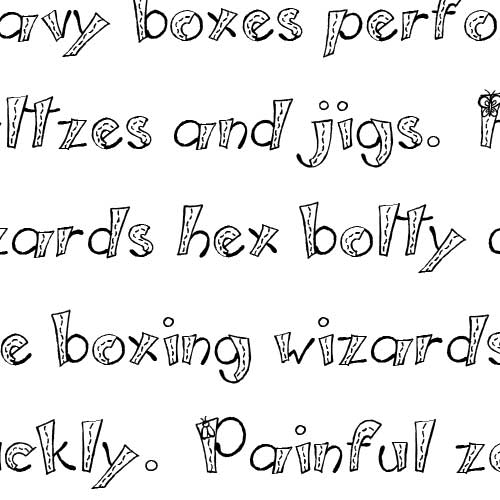 avy boxes perfo
ltzes and jigs.
zards hex botty
e boxing wizards
ckly. Painful ze